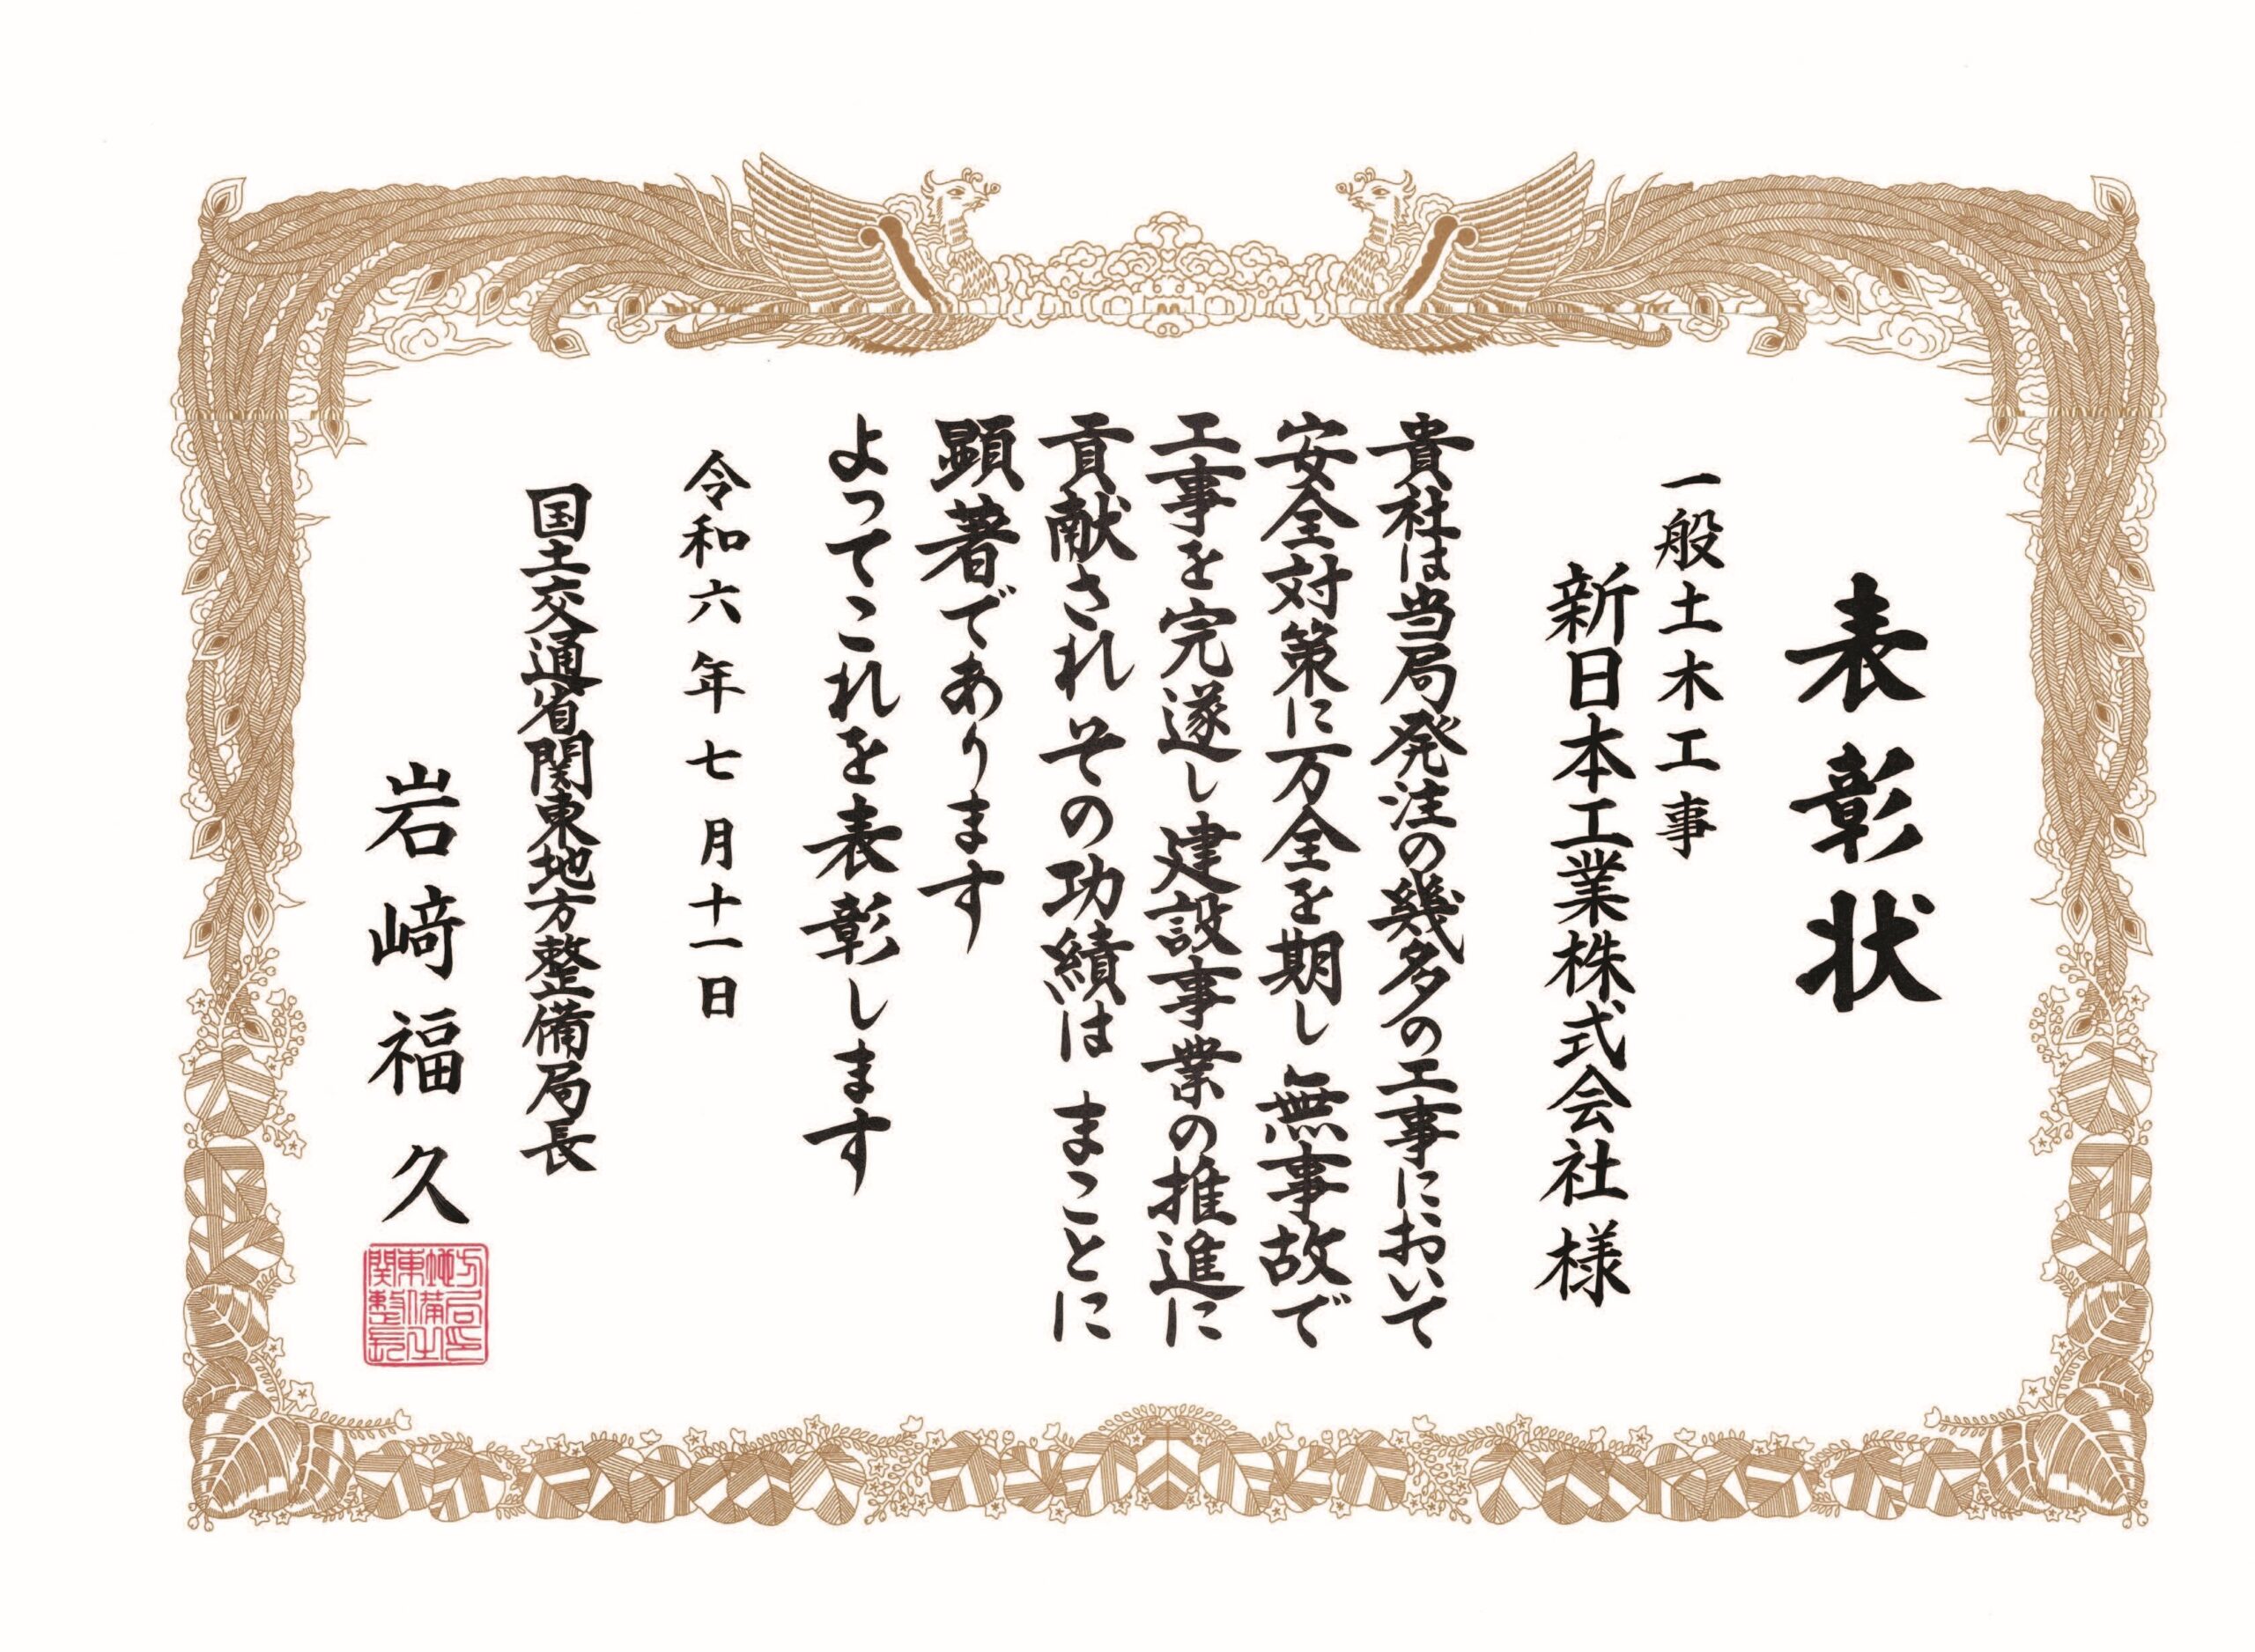 表彰状
一般土木工事
新日本工業株式会社様
貴社は当局発注の幾多の工事において
安全対策に万全を期し 無事故で
工事を完遂し 建設事業の推進に
貢献され その功績は まことに
顕著であります
よってこれを表彰します
令和六年七月十一日
国土交通省関東地方整備局長
岩﨑福久